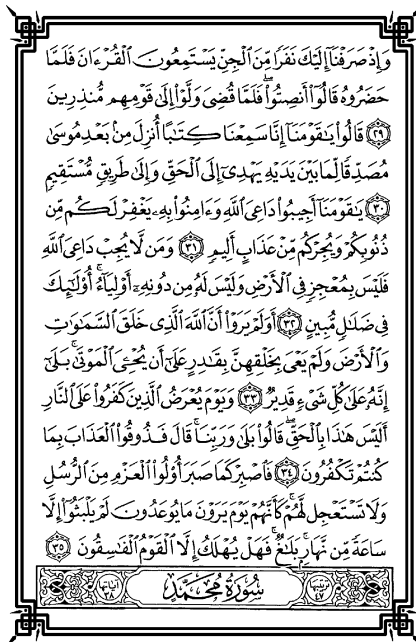 وَإِذْ صَرَفْنَآ إِلَيْكَ نَفَرًا مِّنَ ٱلْجِنِّ يَسْتَمِعُونَ ٱلْقُرْءَانَ فَلَمَّا
حَضَرُوهُ قَالُوٓا۟ أَنصِتُوا۟ ۖ فَلَمَّا قُضِىَ وَلَّوْا۟ إِلَىٰ قَوْمِهِم مُّنذِرِينَ
﴿٢٩﴾ قَالُوا۟ يَٰقَوْمَنَآ إِنَّا سَمِعْنَا كِتَٰبًا أُنزِلَ مِنۢ بَعْدِ مُوسَىٰ
مُصَدِّقًا لِّمَا بَيْنَ يَدَيْهِ يَهْدِىٓ إِلَى ٱلْحَقِّ وَإِلَىٰ طَرِيقٍ مُّسْتَقِيمٍ
﴿٣٠﴾ يَٰقَوْمَنَآ أَجِيبُوا۟ دَاعِىَ ٱللَّهِ وَءَامِنُوا۟ بِهِۦ يَغْفِرْ لَكُم مِّن
ذُنُوبِكُمْ وَيُجِرْكُم مِّنْ عَذَابٍ أَلِيمٍ ﴿٣١﴾ وَمَن لَّا يُجِبْ دَاعِىَ ٱللَّهِ
فَلَيْسَ بِمُعْجِزٍ فِى ٱلْأَرْضِ وَلَيْسَ لَهُۥ مِن دُونِهِۦٓ أَوْلِيَآءُ ۚ أُو۟لَٰٓئِكَ
فِى ضَلَٰلٍ مُّبِينٍ ﴿٣٢﴾ أَوَلَمْ يَرَوْا۟ أَنَّ ٱللَّهَ ٱلَّذِى خَلَقَ ٱلسَّمَٰوَٰتِ
وَٱلْأَرْضَ وَلَمْ يَعْىَ بِخَلْقِهِنَّ بِقَٰدِرٍ عَلَىٰٓ أَن يُحْـِۧىَ ٱلْمَوْتَىٰ ۚ بَلَىٰٓ
إِنَّهُۥ عَلَىٰ كُلِّ شَىْءٍ قَدِيرٌ ﴿٣٣﴾ وَيَوْمَ يُعْرَضُ ٱلَّذِينَ كَفَرُوا۟ عَلَى ٱلنَّارِ
أَلَيْسَ هَٰذَا بِٱلْحَقِّ ۖ قَالُوا۟ بَلَىٰ وَرَبِّنَا ۚ قَالَ فَذُوقُوا۟ ٱلْعَذَابَ بِمَا
كُنتُمْ تَكْفُرُونَ ﴿٣٤﴾ فَٱصْبِرْ كَمَا صَبَرَ أُو۟لُوا۟ ٱلْعَزْمِ مِنَ ٱلرُّسُلِ
وَلَا تَسْتَعْجِل لَّهُمْ ۚ كَأَنَّهُمْ يَوْمَ يَرَوْنَ مَا يُوعَدُونَ لَمْ يَلْبَثُوٓا۟ إِلَّا
سَاعَةً مِّن نَّهَارٍۭ ۚ بَلَٰغٌ ۚ فَهَلْ يُهْلَكُ إِلَّا ٱلْقَوْمُ ٱلْفَٰسِقُونَ ﴿٣٥﴾
ترتيبها ٤٧ سُورَةُ مُحَمَّدٍ آياتها ٣٨